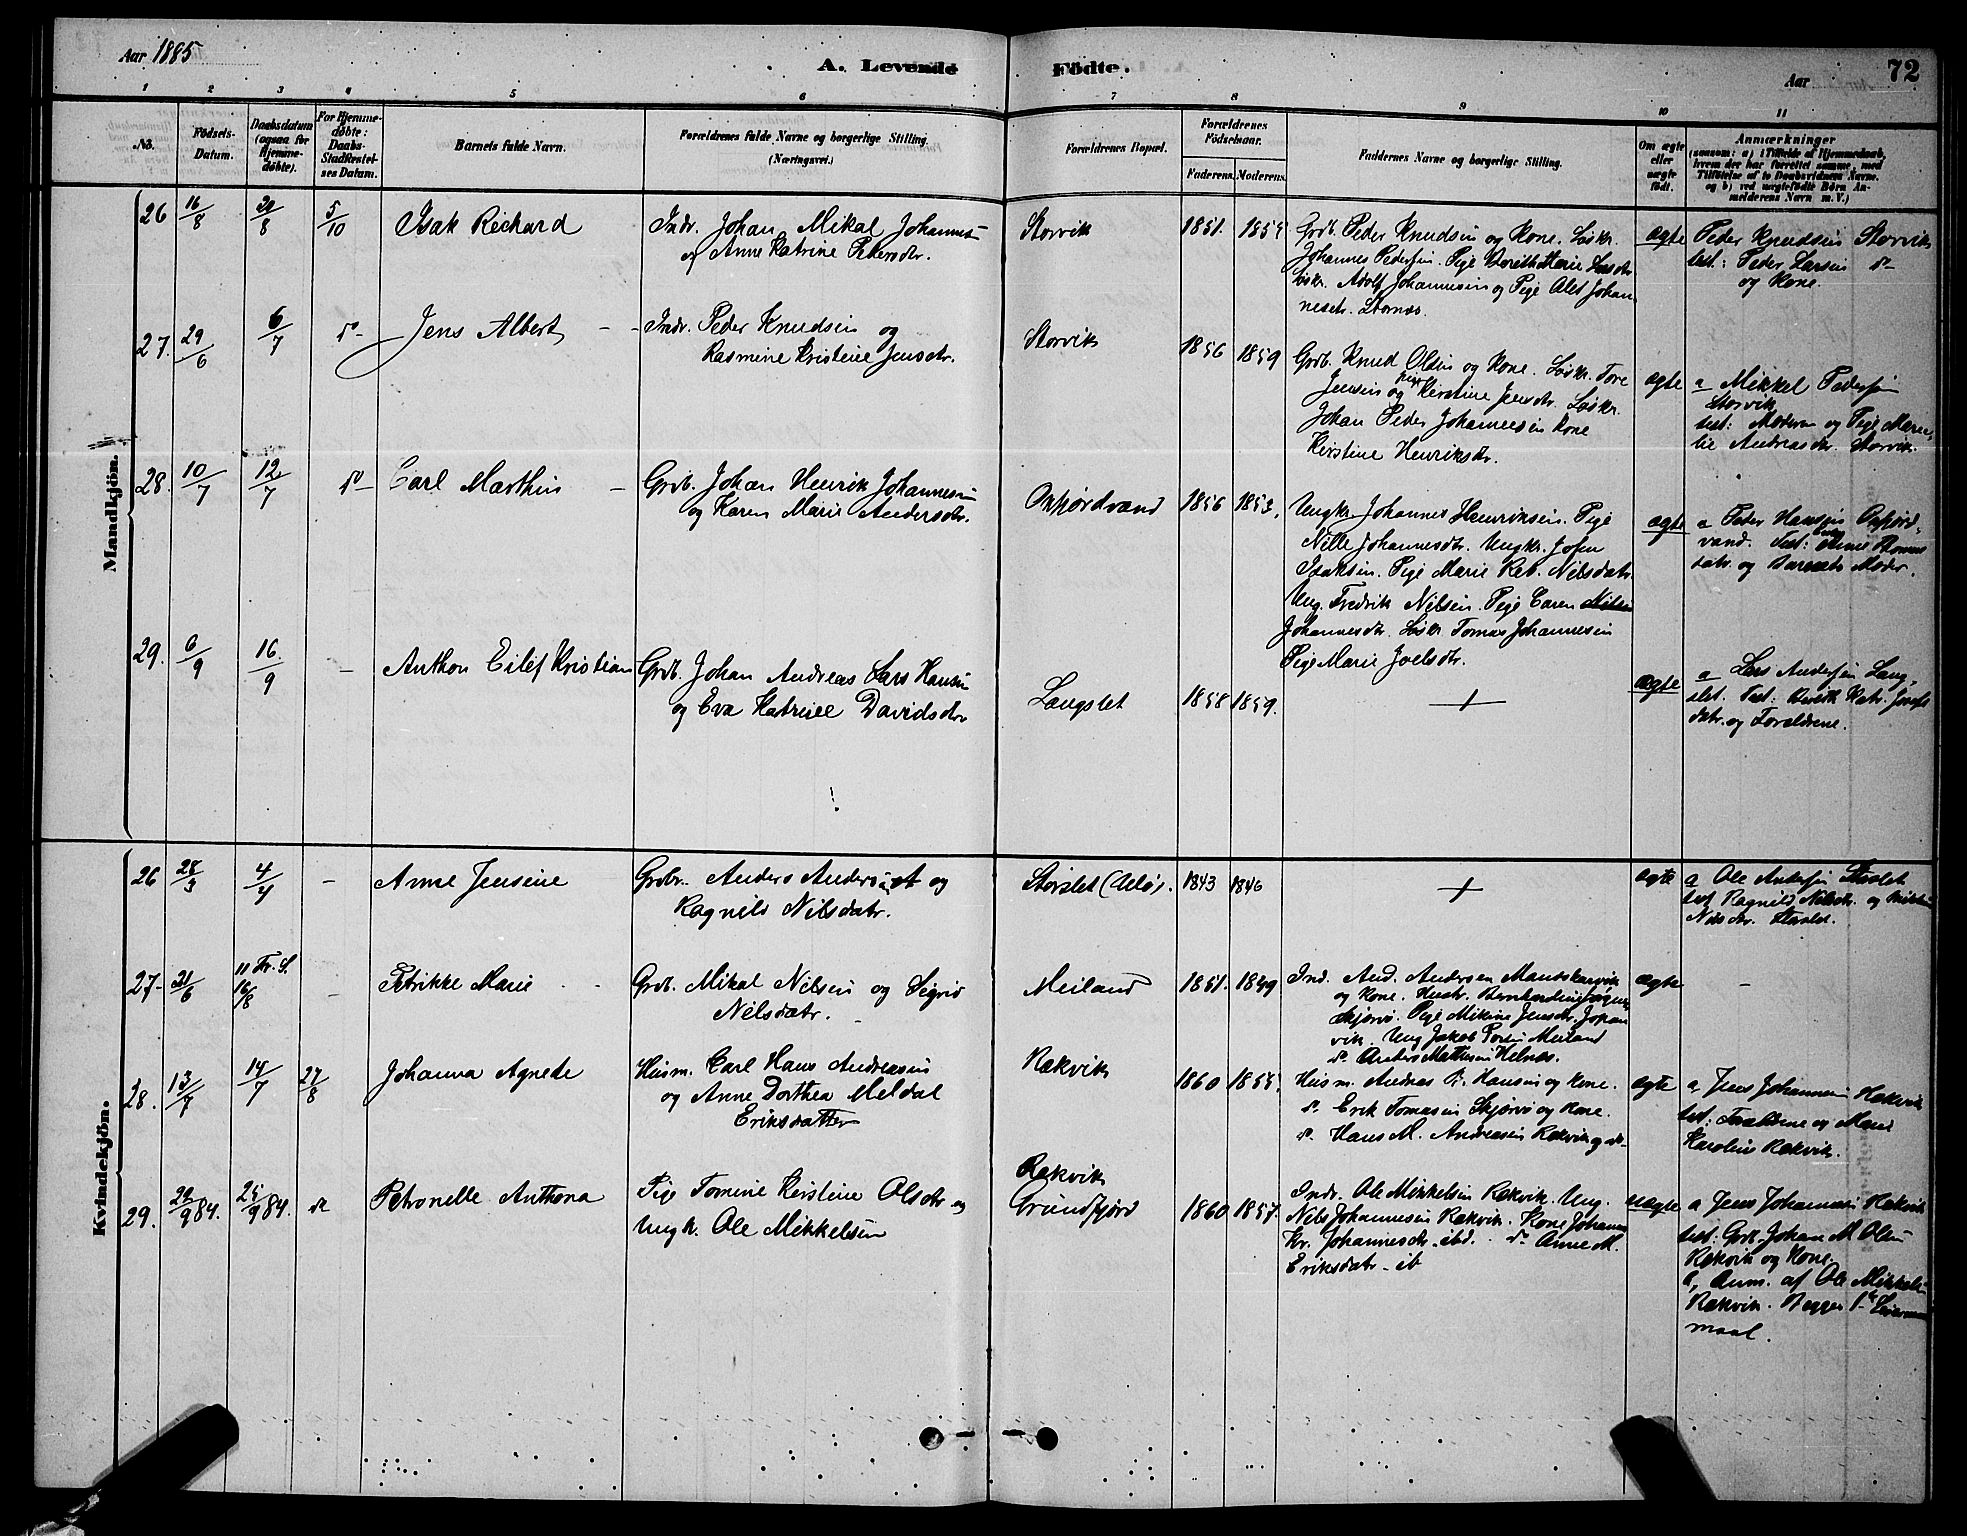 Aar 1885
A. Levende Födte.
Aar
72
1 2 3 4 5 6 7 8 9 10 11
No.
Födsels-
Datum.
Daabsdatum
(ogsaa for
Hjemme-
døbte).
For Hjemme-
døbte:
Daabs-
Stadfæstel-
ses Datum.
Barnets fulde Navn.
Forældrenes fulde Navne og borgerlige Stilling.
(Næringsvei.)
Forældrenes Bopæl.
Forældrenes
Födselsaar.
Faderens. Moderens.
Faddernes Navne og borgerlige Stilling.
Om ægte
eller
uægte
født.
Anmærkninger
(saasom: a) i Tilfælde af Hjemmedaab,
hvem der har forrettet samme, med
Tilføielse af to Daabsvidners Navne,
og b) ved uægtefødte Børn An-
melderens Navn m. V.)
Mandkjön.
26 16/8 20/8 5/10 Isak Richard
Indr. Johan Mikal Johannes
og Anne Katrine Pedersdtr.
Storvik
1851. 1854
Grdb. Peder Knudsen og Kone. Løskr.
Johannes Pedersen. Pige Dorith Marie Larsdtr
Løskr. Adolf Johannesen og Pige Alet Johan
nesdtr. Stornæs.
ægte
Peder Knudsen Storvik
test.: Peder Larsen do
og Kone.
27. 29/6 6/7 do Jens Albert
Indr. Peder Knudsen og
Rasmine Kristine Jensdtr.
Storvik
1856 1859
Grdb. Knud Olsen og Kone. Løskr. Tore
Jensen og Pige Kerstine Jensdtr. Løskr.
Johan Peder Johannesen Kone
Kirstine Henriksdtr.
ægte
a Mikkel Pedersen
Storvik
test: Moderen og Pige Maren
lie Andreasdtr. Storvik.
28. 10/7 12/7 do Carl Marthin
Grdb. Johan Henrik Johannesen
og Karen Marie Andersdtr.
Oxfjordvand
1856 1853.
Ungkr. Johannes Henriksen. Pige
Nille Johannesdtr. Ungkr. Josen
Isaksen. Pige Marie Reb. Nilsdatr.
Ung. Fredrik Nilsen. Pige Caren
Johannesdtr. Løskr. Tomas Johannesen
Pige Marie Joelsdtr.
ægte
a Peder Hansen Oxfjord-
vand. Test:
datr. og Barnets Moder.
29. 6/9 16./9 – Anthon Eilef Kristian
Grdb. Johan Andreas Lars Hansen
og Eva Katrine Davidsdtr
Langslet
1858 1859.
+
ægte
a Lars Andersen Lang-
slet. Test: Katr. Josefs
datr. og Forældrene.
Kvindekjön.
26 28/3 4/4 – Anne Jensine
Grdbr. Anders Andersen og
Ragnild Nilsdatr.
Storslet (Arnø).
1843 1846
+
ægte
a Ole Andersen Storslet
test Ragnild Nilsdtr. og
Nilsdtr. Storslet.
27- 21/6 11 Tr. S. 16/8 – Petrikke Marie
Grdb. Mikal Nilsen og Sigrid
Nilsdatr.
Meiland
1851. 1849
Ind. And. Andersen Mandskarvik
og Kone. Hustr. Bernhardine
Skjervø. Pige Mikine Jensdtr. Johan
vik. Ung Jakob Meiland
do. Anders Mathisen Helnæs.
ægte
–
28. 13/7 14/7 27/8 Johanna Agnete
Husm. Carl Hans Andreasen
og Anne Dorthea Meldal
Eriksdatter
Rækvik
1860 1855.
Husm. Andreas P. Hansen og Kone.
do. Erik Tomasen Skjervø og Kone.
do. Hans M. Andreasen Rækvik og do
ægte
a, Jens Johannesen Rækvik
test: Forældrene og Marie
Karoline Rækvik.
29. 22/9 84. 25/9 84. do Petronelle Anthona
Pige Tomine Kerstine Olsdtr og
Ungk. Ole Mikkelsen
Rækvik
Grundfjord
1860 1857.
Indr. Ole Mikkelsen Rækvik. Ung.
Nils Johannesen Rækvik. Kone Johanna
Kr. Johannesdtr. ibd. do. Anne M.
Eriksdatr. ib
uægte
a Jens Johannesen Rækvik
test: Grdb. Johan M Olsen
Rækvik og Kone.
b, Anm. af Ole Mikkels
Rækvik. Begges 1ste Leier-
maal.